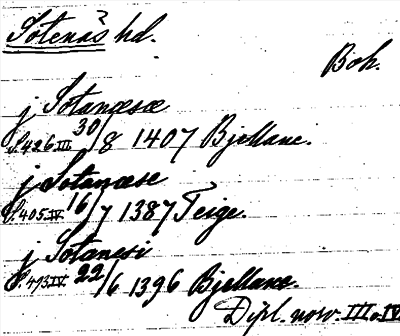 Sotenäs hd.
Boh.
j Sotanæsæ
S. 426 III 30/8 1407 Bjellane.
j Sotanæse
S. 405 IV 16/7 1387 Teige.
j Sotanesi
S. 493 IV 22/6 1396 Bjellane.
Dipl. norv. III o IV